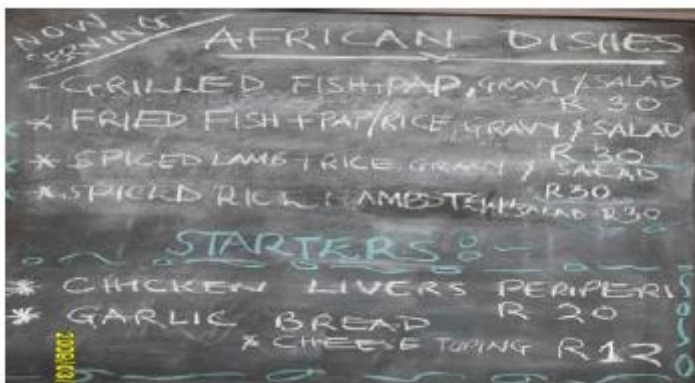 NOW SERVING
AFRICAN DISHES
GRILLED FISH+PAP, GRAVY / SALAD
R 30
* FRIED FISH + PAP/RICE, GRAVY / SALAD
R 30
* SPICED LAMB + RICE GRAVY / SALAD
R30
* SPICED RICE LAMB SALAD R30
STARTERS:-
* CHICKEN LIVERS PERIPERI
R 20
* GARLIC BREAD
* CHEESE TOPING R12